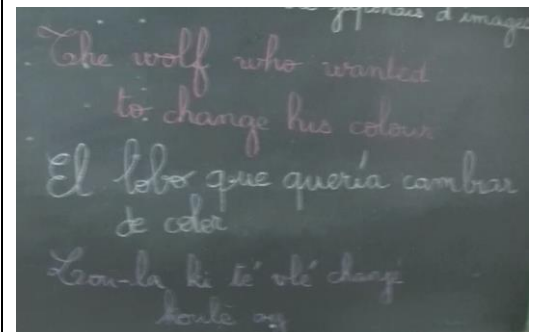 japonais d'images
The wolf who wanted
to change his colour
El lobo que quería cambiar
de color
Lou-la ki té vlé changé
koulè ay